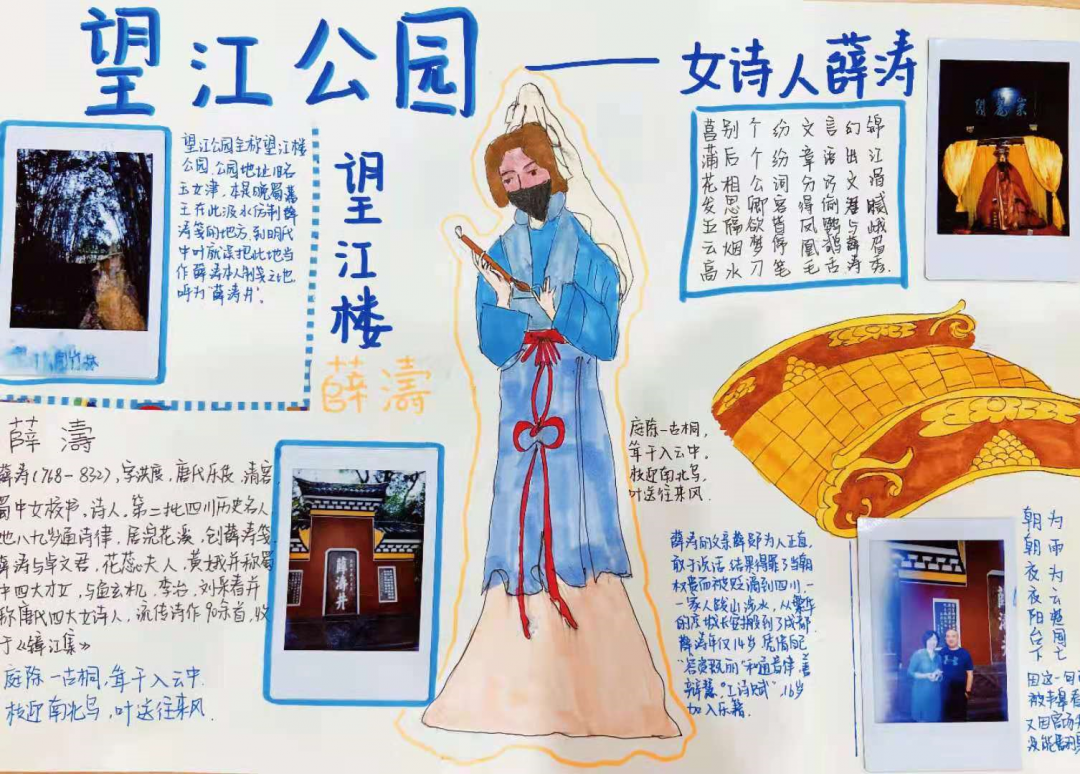 望江公园——女诗人薛涛
望江公园全称望江楼
公园.公园地址旧名
玉女津,本是晚蜀蕃
王在此汲水仿制薛
涛笺的地方,到明代
中叶就误把此地当
作薛涛本人制笺之地
呼为"薛涛井".
望江楼
薛涛
锦江滑腻峨眉秀.
幻出文君与薛涛
言语巧偷鹦鹉舌
文章分得凤凰毛
纷纷词客皆停笔
个个公卿欲梦刀
别后相思隔烟水
菖蒲花发五云高
薛涛
薛涛(768-832),字洪度,唐代乐伎,清客
蜀中女校书,诗人,第二批四川历史名人
她八九岁通诗律,居浣花溪,创薛涛笺
薛涛与卓文君,花蕊夫人,黄娥并称蜀
中四大才女,与鱼玄机,李冶,刘采春并
称唐代四大女诗人,流传诗作90余首,收
于《锦江集》
庭除一古桐,耸干入云中.
枝迎南北鸟,叶送往来风.
薛涛井
庭除一古桐,
耸干入云中,
枝迎南北鸟,
叶送往来风.
薛涛的父亲薛郧为人正直,
敢于说话,结果得罪了当朝
权贵而被贬谪到四川,一
一家人跋山涉水,从繁华
的京城长安搬到了成都.
薛涛年仅14岁.
"和"通音律,善
辩慧,工诗赋".16岁
加入乐籍.
朝朝夜夜阳台下
为雨为云楚国亡
因这一句